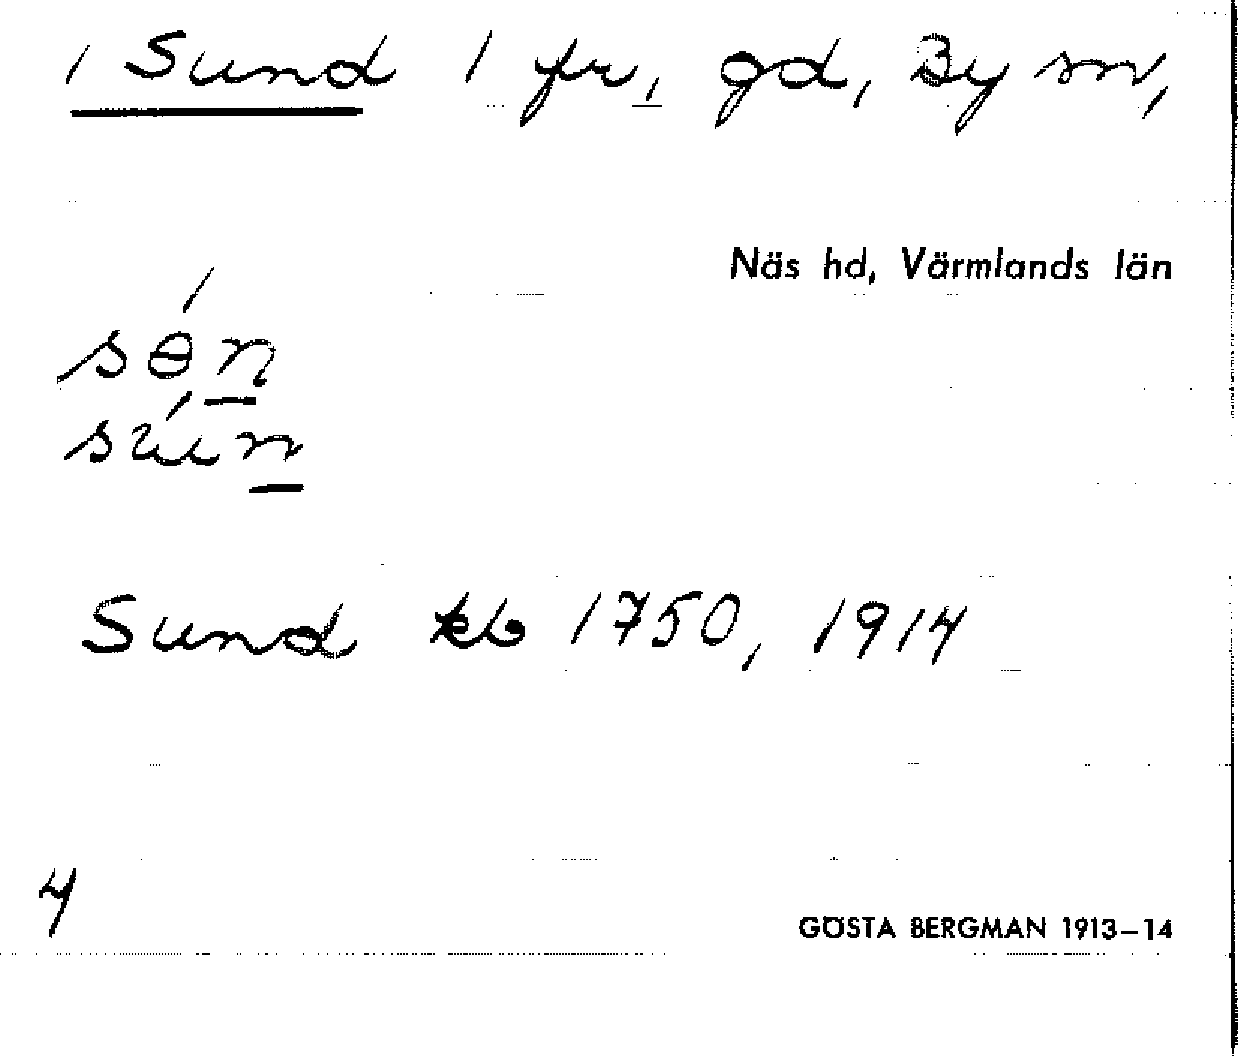 1 Sund 1 fr, gd, By sn,
Näs hd, Värmlands län
sɵ́n̲
sún̲
Sund kb 1750, 1914
4
GÖSTA BERGMAN 1913–14